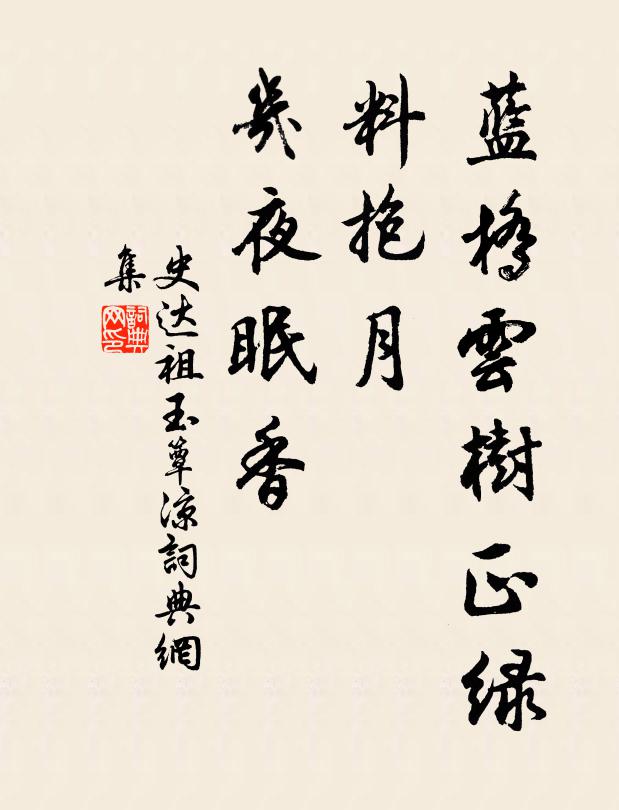 藍橋雲樹正緑
料抱月
幾夜眠香
史达祖玉蕈涼詞典網
集
詞典
网印